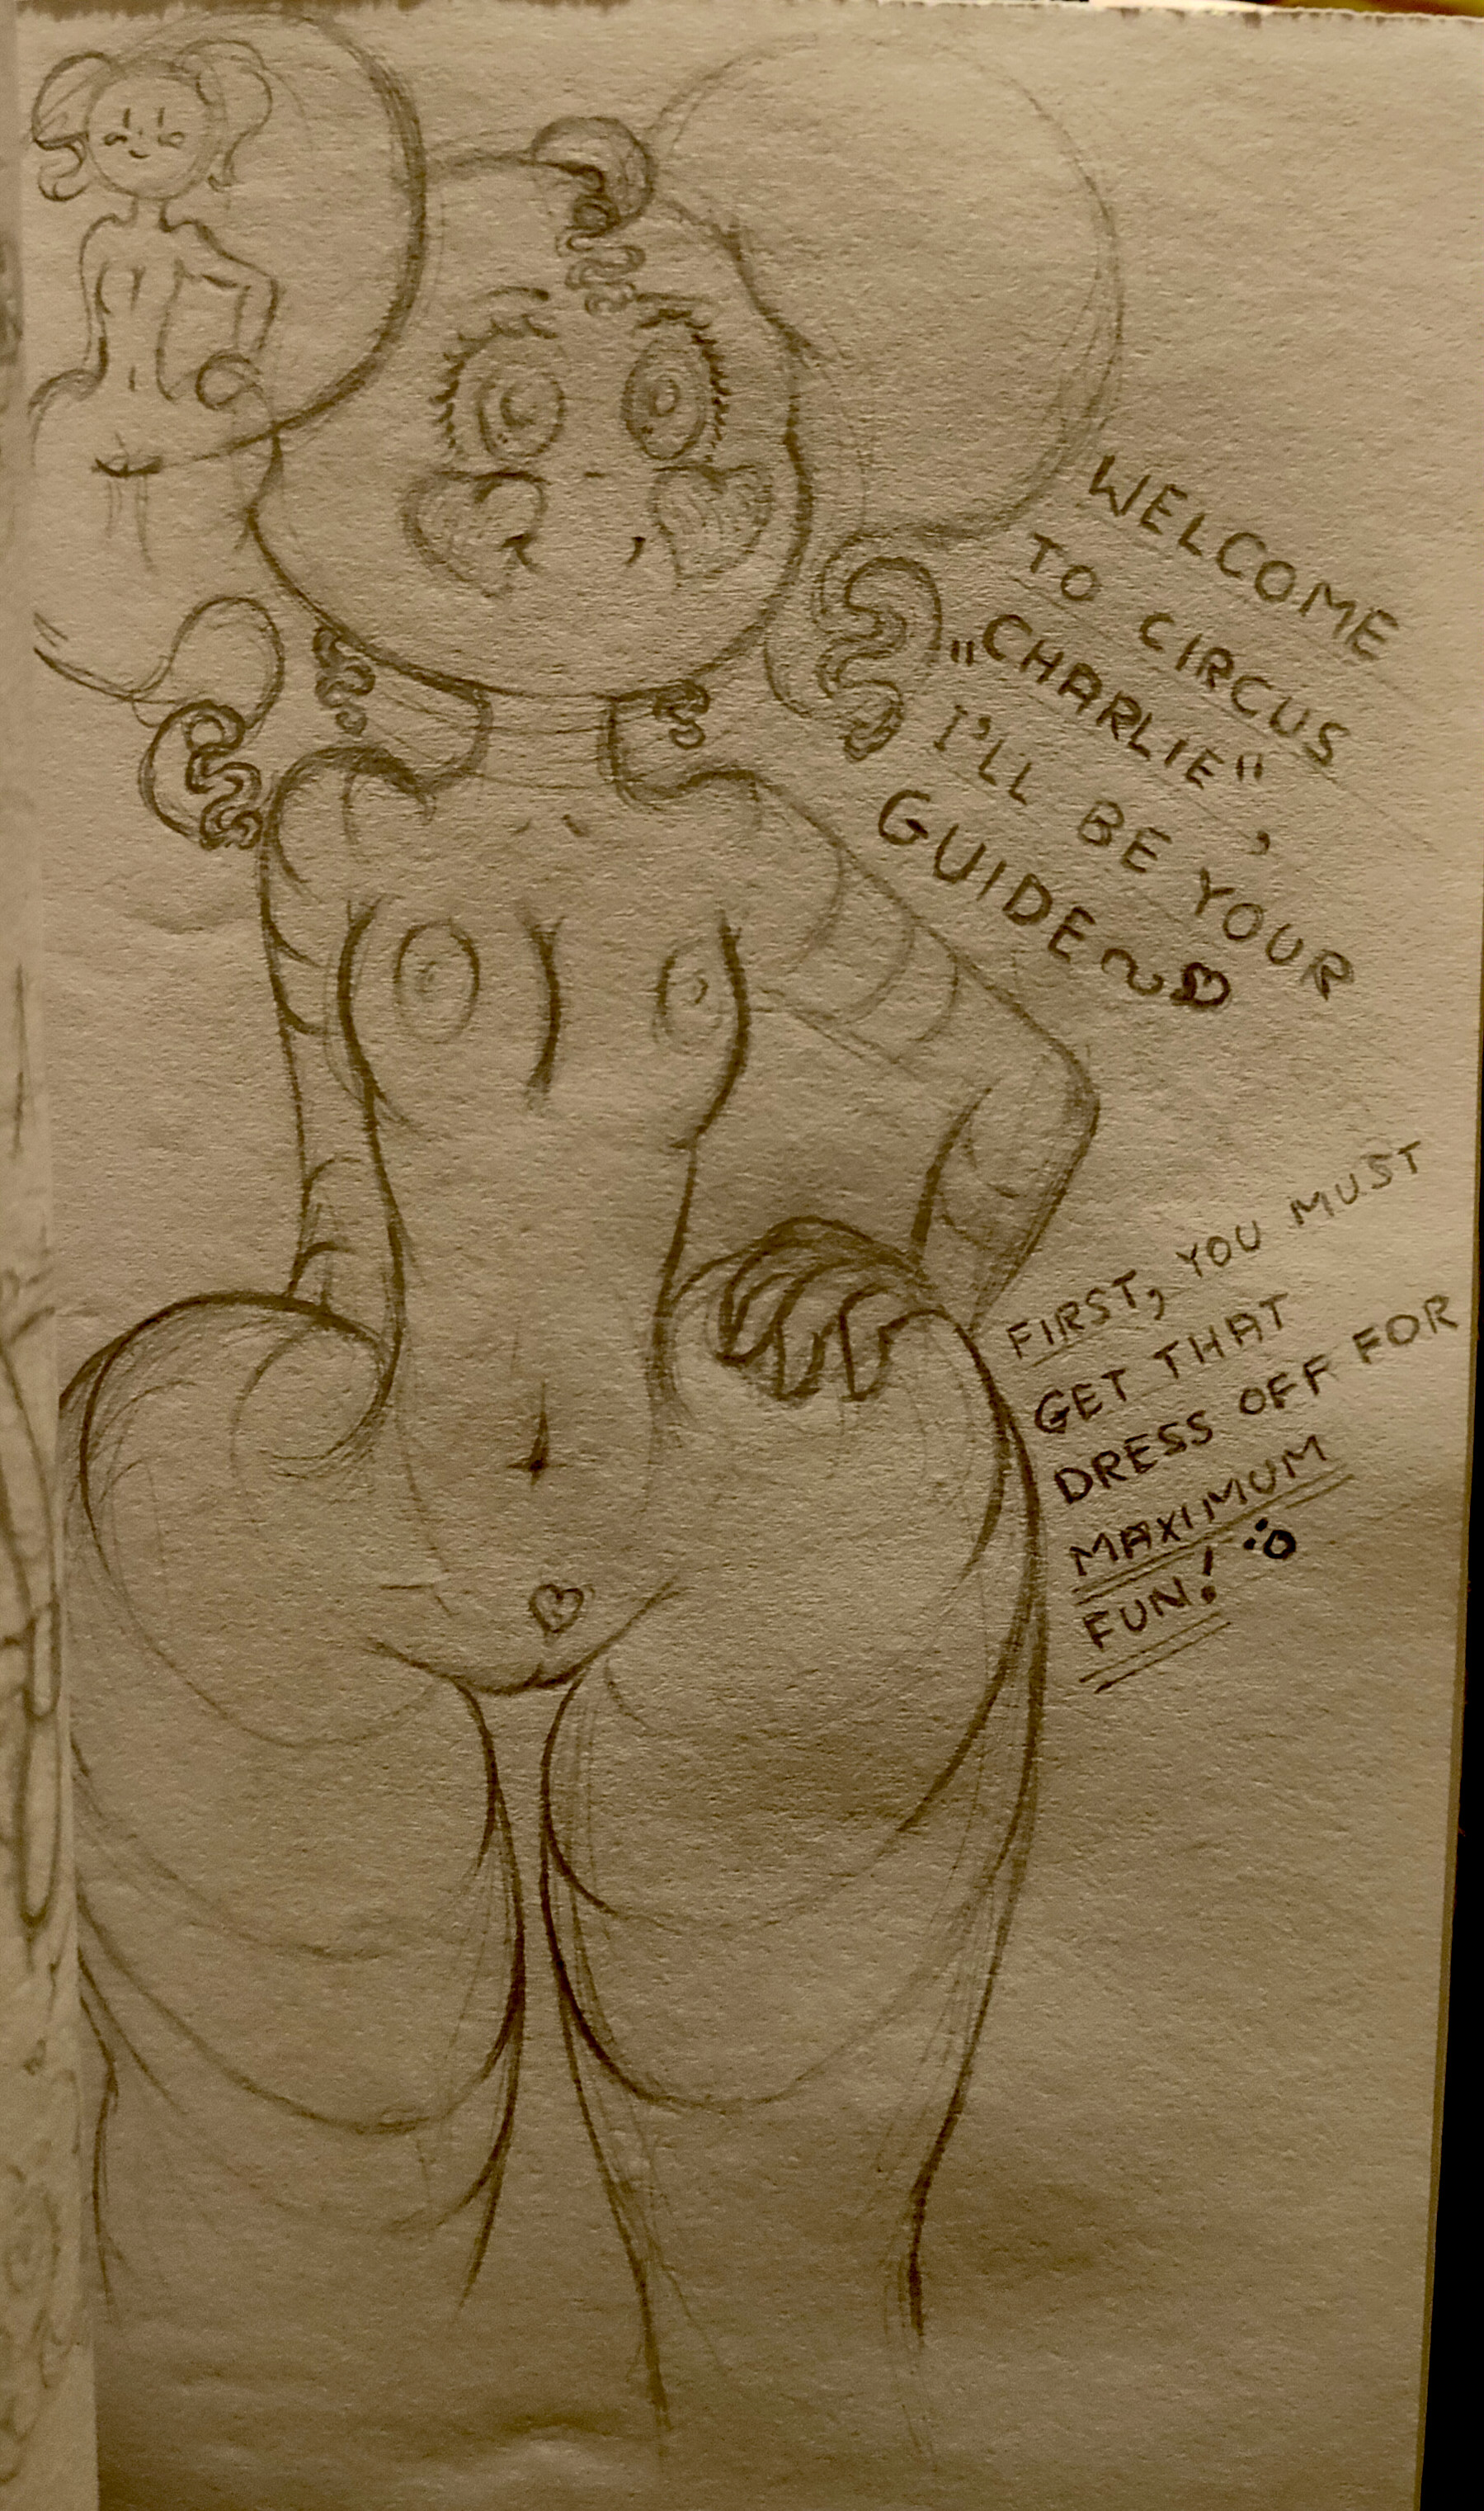 WELCOME
TO CIRCUS
„CHARLIE",
I'LL BE YOUR
GUIDE~♡
FIRST, YOU MUST
GET THAT
DRESS OFF FOR
MAXIMUM
FUN! :O